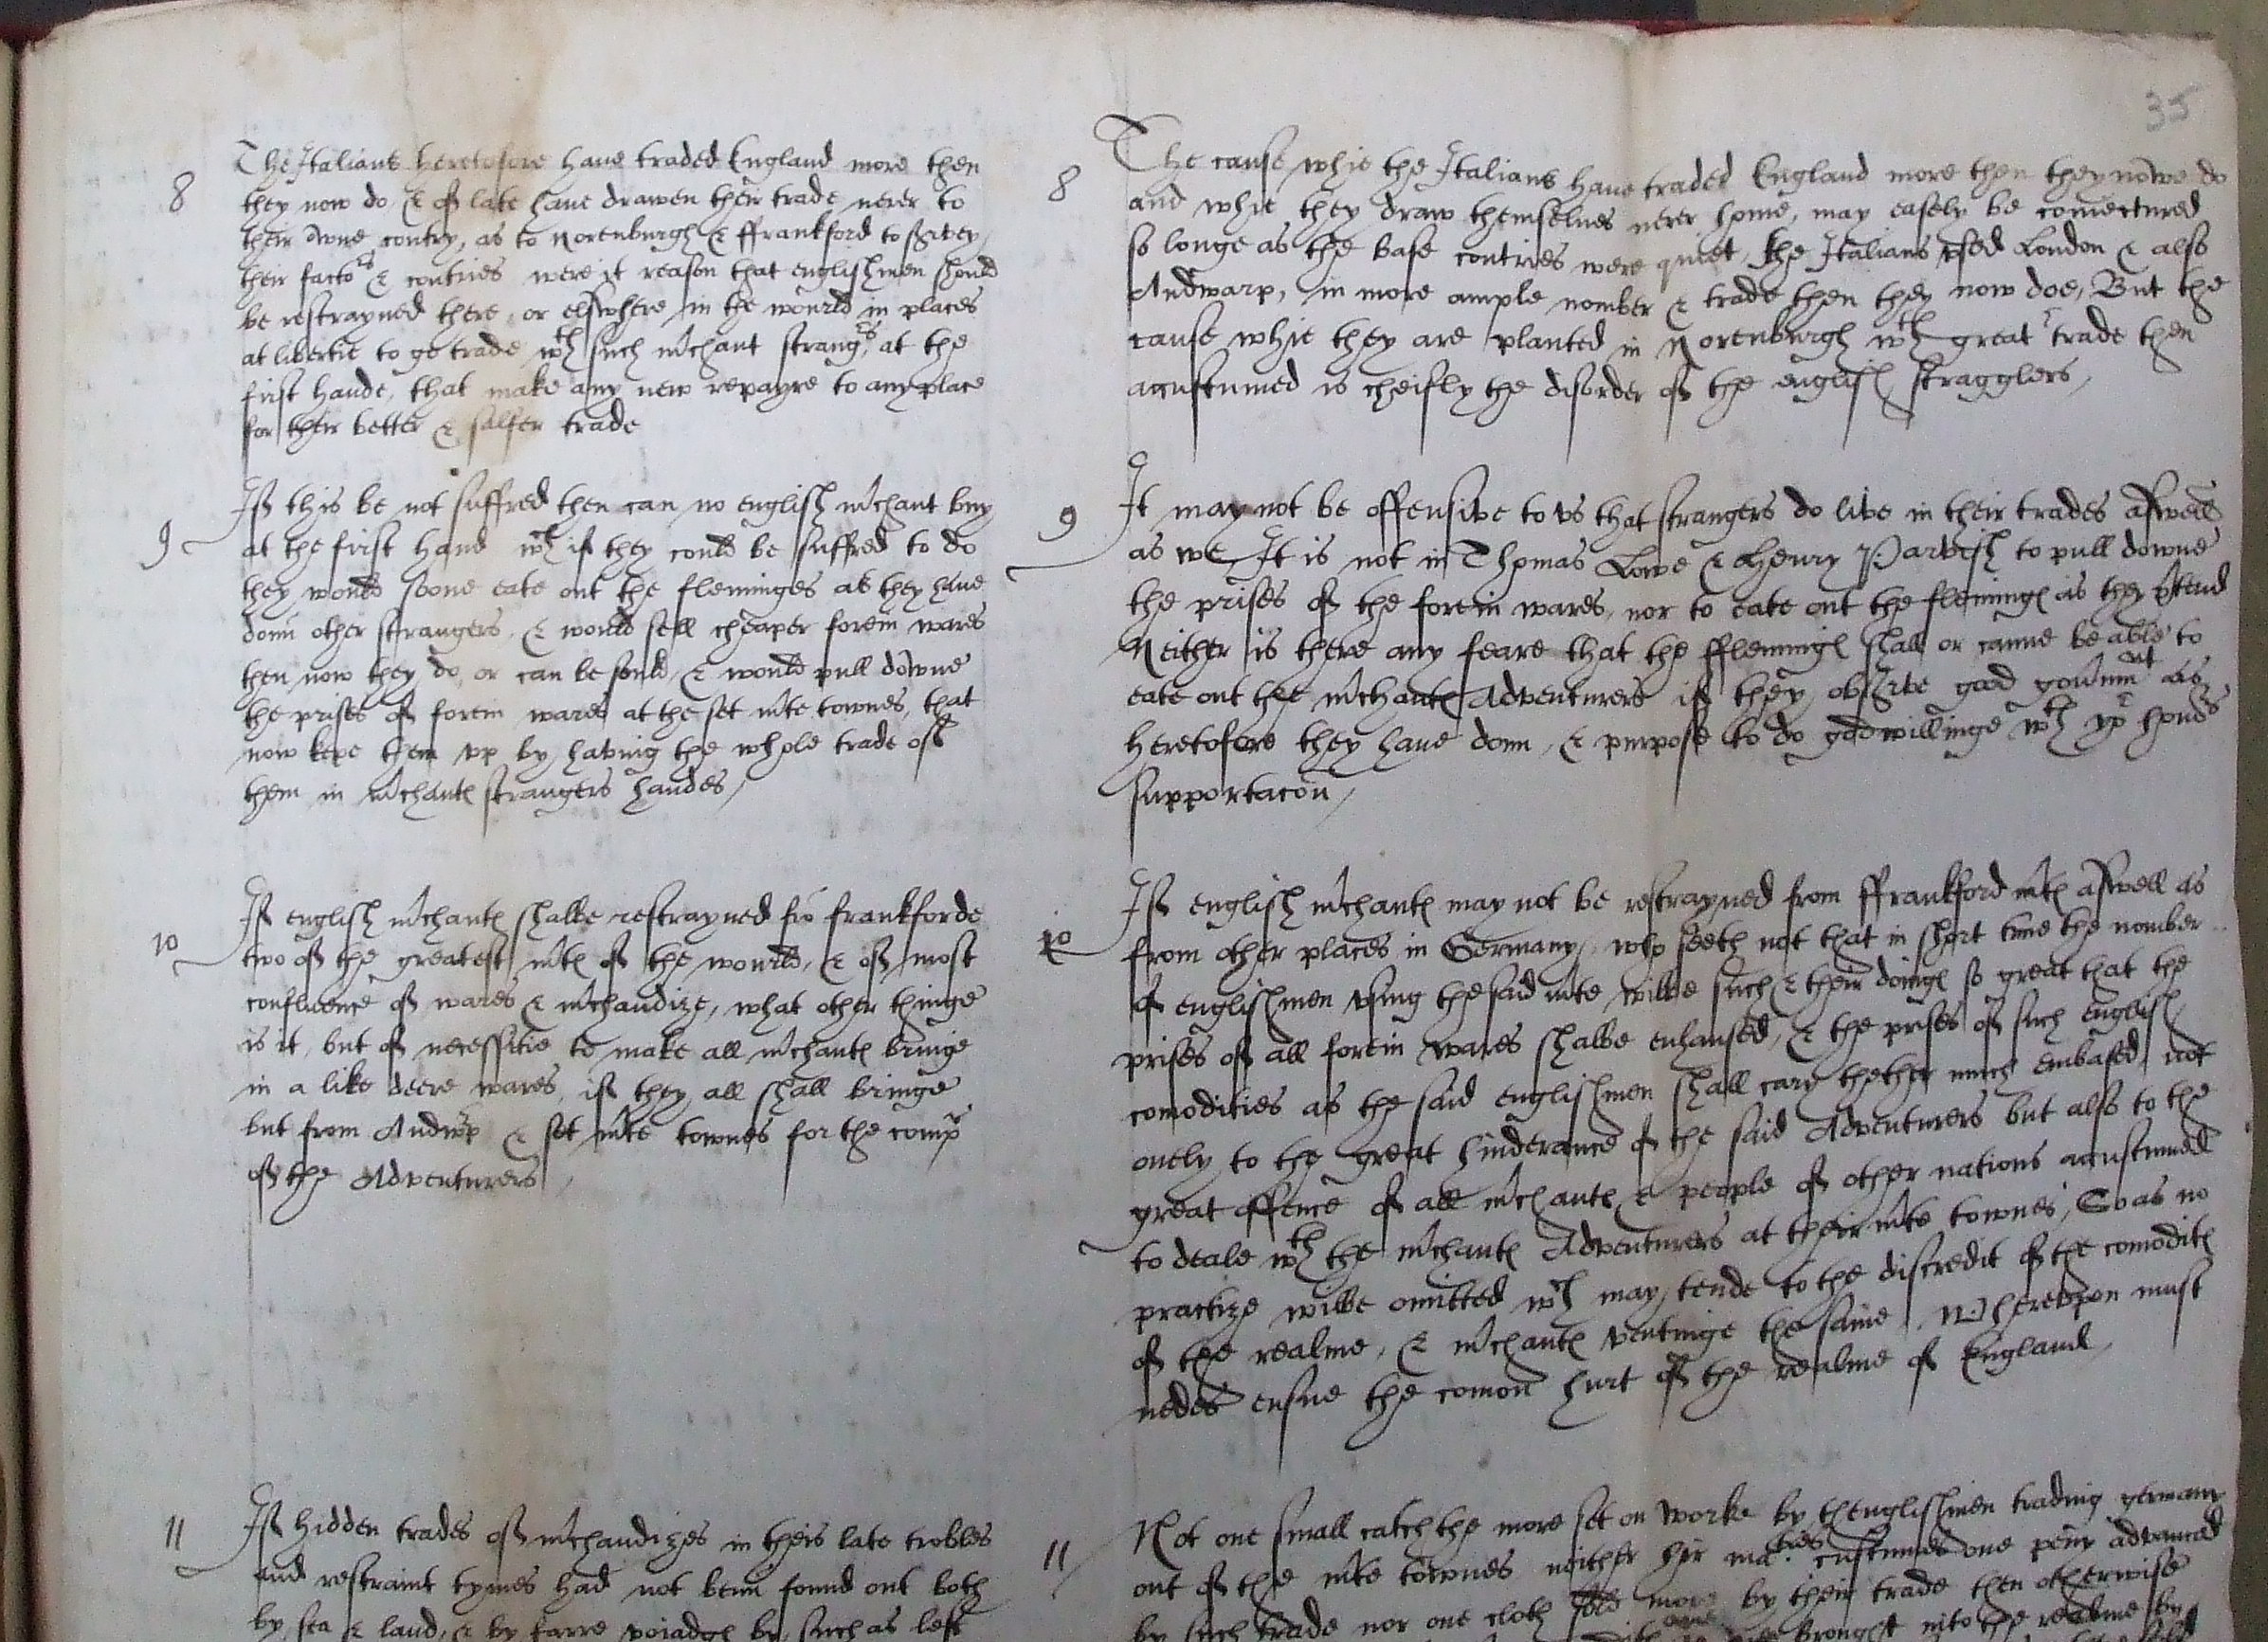 35
8 The Italians heretofore haue traded England more then
they now do, & of late haue drawen their trade nerer to
their owne contry, as to Norenburgh & ffrankford to
their factors & contries were it reason that englishmen should
be restrayned there, or elswhere in the wourld in places
at libertie to go trade wth such mchant strangrs at the
first hande, that make any new repayre to any place
for their better & salfer trade
9 If this be not suffred then can no english mchant buy
at the first hand wch if they could be suffred to do
they would soone eate out the fleminges as they haue
donn other strangers, & would sell cheaper forein wares
then now they do, or can be sould, & would pull downe
the prises of forein wares at the set mte townes, that
now kepe them vp by having the whole trade off
them in mchantes strangers handes,
10 If english mchantes shalbe restrayned fro frankforde
two of the greatest mtes of the wourld, & of most
confluence of wares & mchandize, what other thinge
is it, but of necessitie to make all mchantes bringe
in a like deere wares, if they all shall bringe
but from Andwrp & set mte townes for the comp
of the Adventurers,
11 If hidden trades of mchandizes in theis late trobles
and restraint tymes had not benn found out both
by sea & land, & by farre voiadges by such as left
8 The cause whie the Italians haue traded England more then they nowe do
and whie they draw themselues nerer home, may easely be coniectured
so longe as the base contries were quiet, the Italians vsed London & also
Andwarp, in more ample nomber & trade then they now doe, But the
cause whie they are planted in Norenburgh wth greatr trade then
accustumed is cheifly the disorder of the english stragglers,
9 It may not be offensive to vs that strangers do live in their trades aswell
as we It is not in Thomas Lowe & Henry Parvish to pull downe
the prises of the forein wares, nor to eate out the flemings as they ptend
Neither is there any feare that the fflemings shall or canne be able to
eate out the mchantes Adventurers if they observe good gouernmt as
heretofore they haue donn, & purpose to do godwillinge wth yr honors
supportacon,
10 If english mchantes may not be restrayned from ffrankford mtes aswell as
from other places in Germany, who seeth not that in short time the nomber
of englishmen vsing the said mte wilbe such & their doinges so great that the
prises of all forein wares shalbe enhansed, & the prises of such english
comodities as the said englishmen shall cary thether much embased, not
onely to the great hinderance of the said Adventurers but also to the
great offence of all mchantes & people of other nations accustumed
to deale wth the mchantes Adventurers at their mte townes, So as no
practize wilbe omitted wch may tende to the discredit of the comodites
of the realme, & mchantes ventinge the same, Wherevpon must
nedes ensue the comon hurt of the realme of England,
11 Not one small catch the more set on worke by thenglishmen trading germany
out of the mte townes neither hir maties custumes one peny advanced
by such trade nor one cloth sold more by their trade then otherwise
brought into the realme by